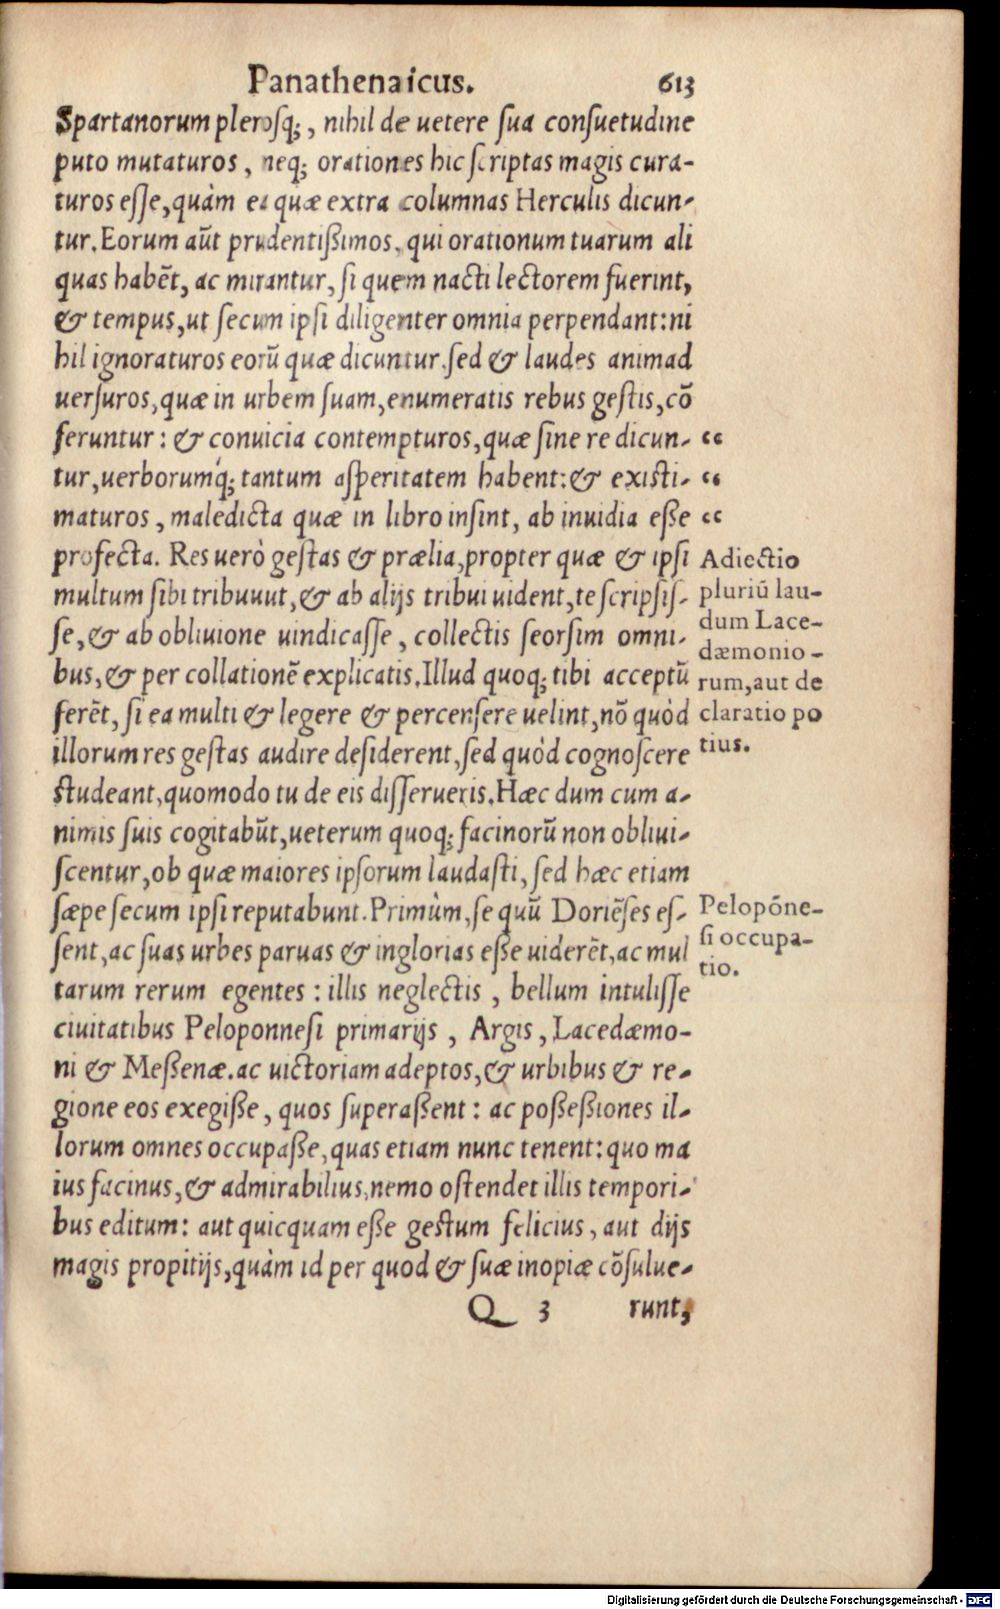 Panathenaicus. 613
Spartanorum plerosq;, nihil de uetere sua consuetudine
puto mutaturos, neq; orationes hic scriptas magis cura-
turos esse, quàm ea quæ extra columnas Herculis dicun-
tur. Eorum aūt prudentißimos, qui orationum tuarum ali
quas habēt, ac mirantur, si quem nacti lectorem fuerint,
& tempus, ut secum ipsi diligenter omnia perpendant: ni
hil ignoraturos eorū quæ dicuntur. sed & laudes animad
uersuros, quæ in urbem suam, enumeratis rebus gestis, cō
feruntur: & conuicia contempturos, quæ sine re dicun- “
tur, uerborumq́; tantum asperitatem habent: & existi- “
maturos, maledicta quæ in libro insint, ab inuidia eße “
profecta. Res uerò gestas & prælia, propter quæ & ipsi
multum sibi tribuuut, & ab alijs tribui uident, te scripsis-
se, & ab obliuione uindicasse, collectis seorsim omni-
bus, & per collationē explicatis. Illud quoq; tibi acceptū
ferēt, si ea multi & legere & percensere uelint, nō quòd
illorum res gestas audire desiderent, sed quòd cognoscere
studeant, quomodo tu de eis disserueris. Hæc dum cum a-
nimis suis cogitabūt, ueterum quoq; facinorū non obliui-
scentur, ob quæ maiores ipsorum laudasti, sed hæc etiam
sæpe secum ipsi reputabunt. Primùm, se quū Doriēses es-
sent, ac suas urbes paruas & inglorias eße uiderēt, ac mul
tarum rerum egentes: illis neglectis, bellum intulisse
ciuitatibus Peloponnesi primarijs, Argis, Lacedæmo-
ni & Meßenæ. ac uictoriam adeptos, & urbibus & re-
gione eos exegiße, quos superaßent: ac poßeßiones il-
lorum omnes occupaße, quas etiam nunc tenent: quo ma
ius facinus, & admirabilius, nemo ostendet illis tempori-
bus editum: aut quicquam eße gestum felicius, aut dijs
magis propitijs, quàm id per quod & suæ inopiæ cōsulue-
Q 3 runt,
Adiectio
pluriū lau-
dum Lace-
dæmonio-
rum, aut de
claratio po
tius.
Pelopōne-
si occupa-
tio.
Digitalisierung gefördert durch die Deutsche Forschungsgemeinschaft - DFG